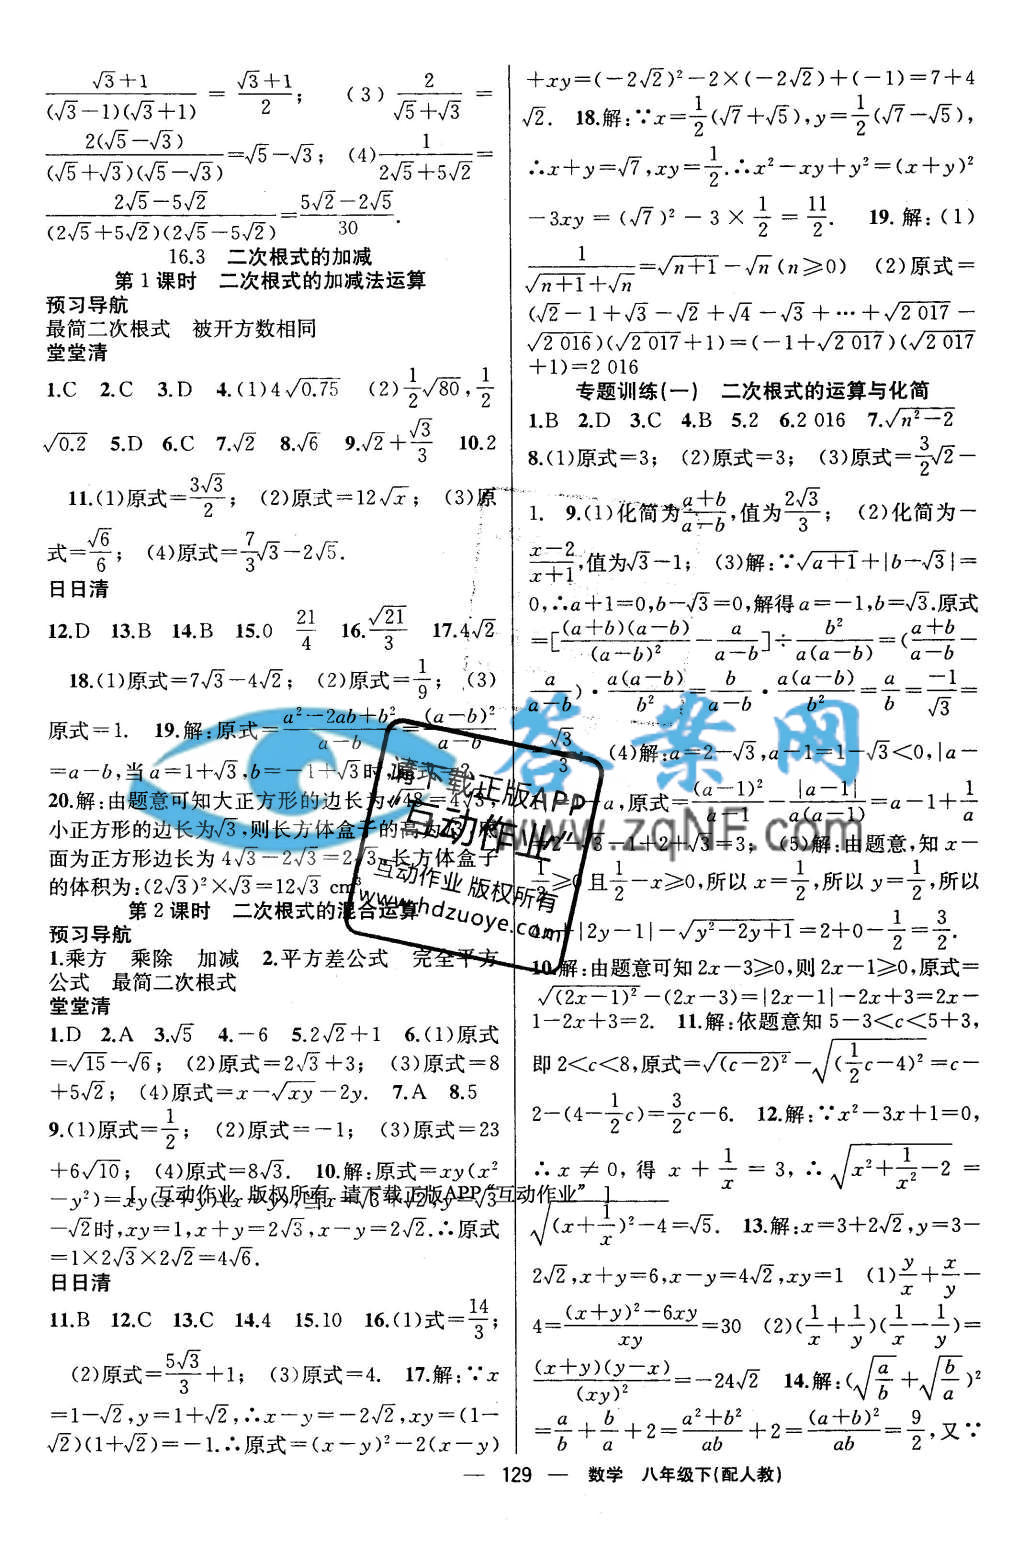 (√3+1)/((√3−1)(√3+1)) = (√3+1)/2； (3) 2/(√5+√3) =
2(√5−√3)/((√5+√3)(√5−√3)) =√5−√3； (4) 1/(2√5+5√2) =
(2√5−5√2)/((2√5+5√2)(2√5−5√2)) = (5√2−2√5)/30.
16.3 二次根式的加减
第1课时 二次根式的加减法运算
预习导航
最简二次根式 被开方数相同
堂堂清
1.C 2.C 3.D 4.(1)4√0.75 (2)1/2√80,1/2
√0.2 5.D 6.C 7.√2 8.√6 9.√2+√3/3 10.2
11.(1)原式=3√3/2； (2)原式=12√x； (3)原
式=√6/6； (4)原式=7/3√3−2√5.
日日清
12.D 13.B 14.B 15.0 21/4 16.√21/3 17.4√2
18.(1)原式=7√3−4√2； (2)原式=1/9； (3)
原式=1. 19.解:原式=(a²−2ab+b²)/(a−b)=(a−b)²/(a−b)
=a−b,当a=1+√3,b=−1+√3时,
20.解:由题意可知大正方形的边长为√48=4√3,
小正方形的边长为√3,则长方体盒子的高为√3,底
面为正方形边长为4√3−2√3=2√3,长方体盒子
的体积为:(2√3)²×√3=12√3 cm³
第2课时 二次根式的混合运算
预习导航
1.乘方 乘除 加减 2.平方差公式 完全平方
公式 最简二次根式
堂堂清
1.D 2.A 3.√5 4.−6 5.2√2+1 6.(1)原式
=√15−√6； (2)原式=2√3+3； (3)原式=8
+5√2； (4)原式=x−√xy−2y. 7.A 8.5
9.(1)原式=1/2； (2)原式=−1； (3)原式=23
+6√10； (4)原式=8√3. 10.解:原式=xy(x²
−y²)=xy(x+y)(x−y),当x=√3+√2,y=√3
[ 互动作业 版权所有 请下载正版APP“互动作业” ]
−√2时,xy=1,x+y=2√3,x−y=2√2.∴原式
=1×2√3×2√2=4√6.
日日清
11.B 12.C 13.C 14.4 15.10 16.(1)式=14/3；
(2)原式=5√3/3+1； (3)原式=4. 17.解:∵x
=1−√2,y=1+√2,∴x−y=−2√2,xy=(1−
√2)(1+√2)=−1.∴原式=(x−y)²−2(x−y)
+xy=(−2√2)²−2×(−2√2)+(−1)=7+4
√2. 18.解:∵x=1/2(√7+√5),y=1/2(√7−√5),
∴x+y=√7,xy=1/2.∴x²−xy+y²=(x+y)²
−3xy=(√7)²−3×1/2=11/2. 19.解:(1)
1/(√n+1+√n)=√n+1−√n(n≥0) (2)原式=
(√2−1+√3−√2+√4−√3+…+√2 017−
√2 016)(√2 017+1)=(−1+√2 017)(√2 017
+1)=2 016
专题训练(一) 二次根式的运算与化简
1.B 2.D 3.C 4.B 5.2 6.2 016 7.√n²−2
8.(1)原式=3； (2)原式=3； (3)原式=3/2√2−
1. 9.(1)化简为(a+b)/(a−b),值为2√3/3； (2)化简为−
(x−2)/(x+1),值为√3−1； (3)解:∵√a+1+|b−√3|=
0,∴a+1=0,b−√3=0,解得a=−1,b=√3.原式
=[(a+b)(a−b)/(a−b)²−a/(a−b)]÷b²/(a(a−b))=((a+b)/(a−b)−
a/(a−b))·a(a−b)/b²=b/(a−b)·a(a−b)/b²=a/b=−1/√3=
√3/3； (4)解:a=2−√3,a−1=1−√3<0,|a−
a,原式=(a−1)²/(a−1)−|a−1|/…=a−1+1/a
=2−√3−1+2+√3=3； (5)解:由题意,知x−
1/2≥0且1/2−x≥0,所以x=1/2,所以y=1/2,所以
+|2y−1|−√y²−2y+1=2+0−1/2=3/2.
10.解:由题意可知2x−3≥0,则2x−1≥0,原式=
√(2x−1)²−(2x−3)=|2x−1|−2x+3=2x−
1−2x+3=2. 11.解:依题意知5−3<c<5+3,
即2<c<8,原式=√(c−2)²−√(1/2c−4)²=c−
2−(4−1/2c)=3/2c−6. 12.解:∵x²−3x+1=0,
∴x≠0,得x+1/x=3,∴√x²+1/x²−2=
√(x+1/x)²−4=√5. 13.解:x=3+2√2,y=3−
2√2,x+y=6,x−y=4√2,xy=1 (1)y/x+x/y−
4=((x+y)²−6xy)/xy=30 (2)(1/x+1/y)(1/x−1/y)=
(x+y)(y−x)/(xy)²=−24√2 14.解:(√a/b+√b/a)²
=a/b+b/a+2=(a²+b²)/ab+2=(a+b)²/ab=9/2,又∵
答案网
www.zqNF.com
请下载正版APP
“互动作业”
互动作业 版权所有
www.hdzuoye.com
— 129 — 数学 八年级下(配人教)